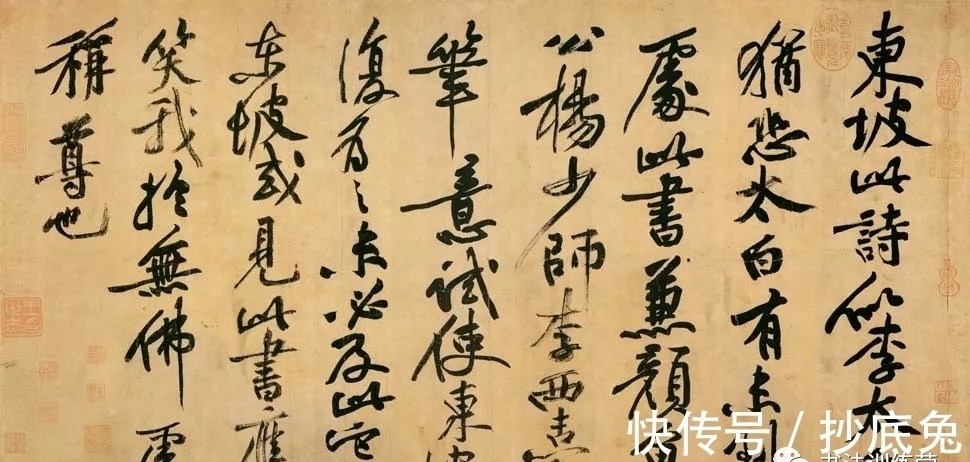 東坡此詩似李太
猶恐太白有未到
處此書兼顏
公楊少師李西
筆意試使東
復為之未必及此它
東坡或見此書應
笑我於無佛處
稱尊也
快传号 / 抄底兔
书法训练营